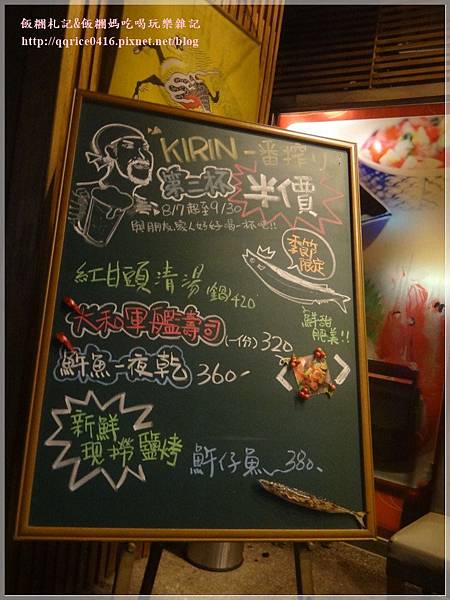 飯糰札記&飯糰媽吃喝玩樂雜記
http://qqrice0416.pixnet.net/blog
KIRIN 一番搾り
第二杯 半價
8/7起至9/30
與朋友家人好好喝一杯吧!!
季節
限定
紅目頭清湯(鍋)420
鮮甜
肥美!!
大和軍艦壽司(一份)320
魽魚一夜乾 360-
新鮮
現撈 鹽烤
魽仔魚 380